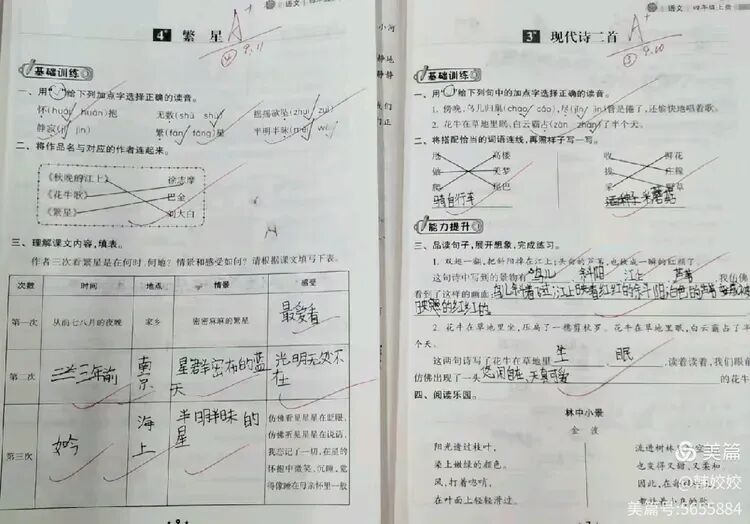 语文 四年级上册
4* 繁星
A+
④ 9.11
基础训练
一、用“✓”给下列加点字选择正确的读音。
怀(huái huán)抱 无数(shǔ shù) 摇摇欲坠(zhuì zuì)
静寂(jì jìn) 繁(fán fáng)星 半明半昧(mèi wèi)
二、将作品名与对应的作者连起来。
《秋晚的江上》 徐志摩
《花牛歌》 巴金
《繁星》 刘大白
三、理解课文内容,填表。
作者三次看繁星是在何时、何地?情景和感受如何?请根据课文填写下表。
次数 时间 地点 情景 感受
第一次 从前七八月的夜晚 家乡 密密麻麻的繁星 最爱看
第二次 三年前 南京 星群密布的蓝天 光明无处不在
第三次 如今 海上 半明半昧的星
仿佛看见星星在眨眼,
仿佛听见星星在说话,
我忘记了一切,在星的
怀抱中微笑,沉睡,觉
得像睡在母亲怀里一般
小河
静地
静静
我们
语文 四年级上册
3* 现代诗二首
A+
③ 9.10
基础训练
一、用“✓”给下列句中的加点字选择正确的读音。
1. 傍晚,鸟儿归巢(chao cáo),尽(jǐn jìn)管是倦了,还愉快地唱着歌。
2. 花牛在草地里眠,白云霸占(zàn zhàn)了半个天。
二、将搭配恰当的词语连线,再照样子写一写。
搭 高楼 收 鲜花
做 美梦 拔 庄稼
爬 尾巴 采 草
骑自行车 采蘑菇
能力提升
三、品读句子,展开想象,完成练习。
1. 双翅一翻,把斜阳掉在江上;头白的芦苇,也妆成一瞬的红颜了。
这句诗中写到的景物有 鸟儿 斜阳 江上 芦苇 ,我仿佛
看到了这样的画面:
2. 花牛在草地里坐,压扁了一穗剪秋罗。花牛在草地里眠,白云霸占了半
个天。
这两句诗写了花牛在草地里 坐 、 眠 ,读着读着,我们眼前
仿佛出现了一头 悠闲自在、天真可爱 的花牛
四、阅读乐园。
林中小景
金波
阳光透过枝叶, 流进树林
染上嫩绿的颜色。 也变得又甜,又柔和
风,打着唿哨, 因此,在
在叶面上轻轻滑过。
美篇
@韩姣姣
美篇号:5655884